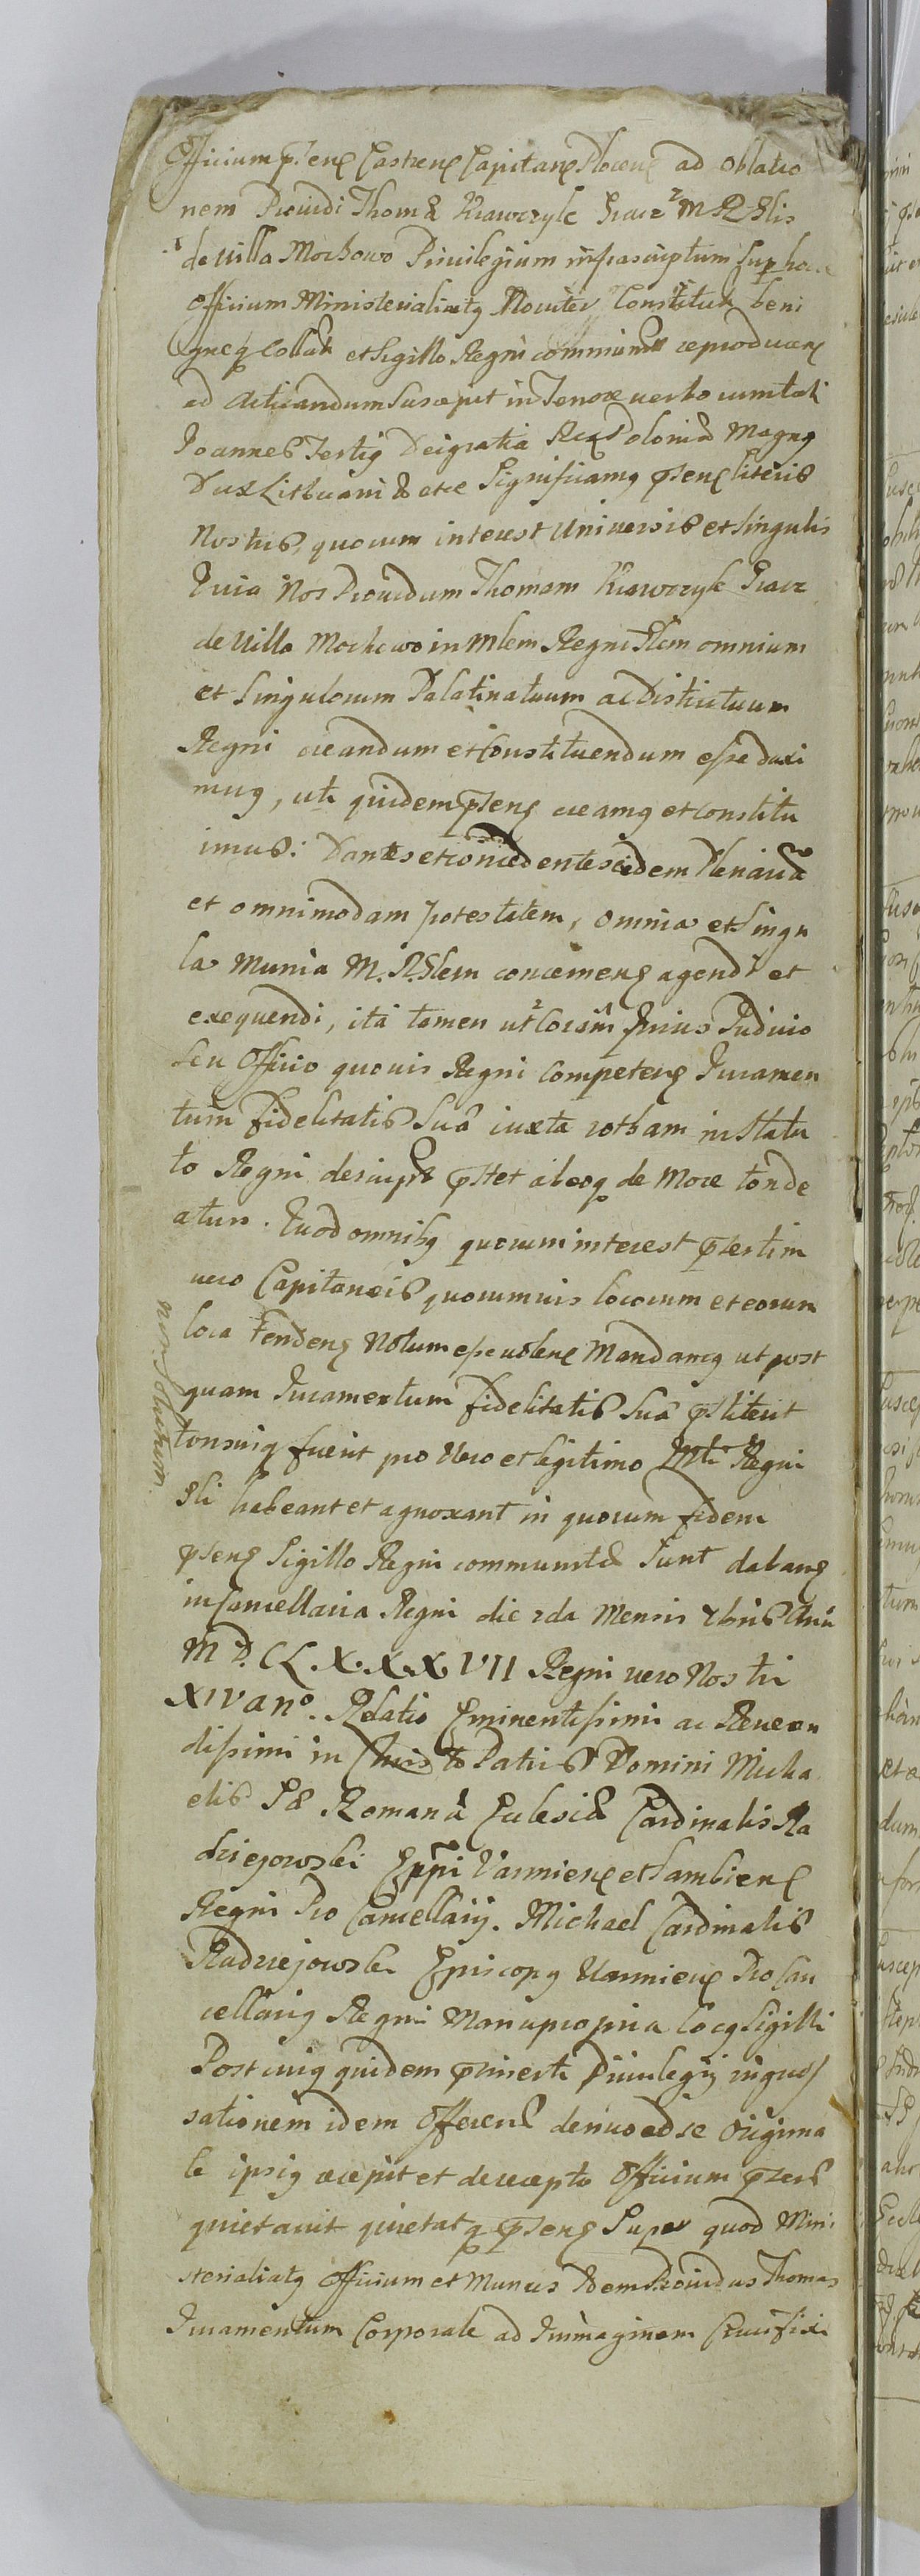 Officium psens Castrens Capitans Plocens ad oblatio
nem Prouidi Thomæ Krawczyk M R Glis
de Villa Mochowo Priuilegium infrascriptum sup hoc
Officium Ministerialitatq Nouiter Constitut beni
gneq collat et Sigillo Regni communit reproducens
ad acticandum Suscepit in Tenore verborum tali
Joannes Tertiq Dei gratia Rex Poloniæ Magnq
Dux Lithuaniæ etc Significamq psens literis
Nostris, quorum interest Universis et Singulis
Quia Nos Prouidum Thomam Krawczyk
de Villa Mochowo in Mlem Regni Glem omnium
et Singulorum Palatinatuum ac Districtuum
Regni creandum et Constituendum esse duxi
muq, uti quidem psens creamq et constitu
imus: Dantes et concedentes eidem Plenariã
et omnimodam potestatem, omnia et Singu
la Munia M. R. Glem concernens agendi et
exequendi, ita tamen ut coram prius Judicio
seu Officio quouis Regni Competens Juramen
tum fidelitatis Suæ iuxta rotham in Statu
to Regni descript pstet ab eoq de More tonde
atur. Quod omnibq quorum interest psertim
vero Capitaneis quorumuis locorum et eorum
loca Tendens Notum esse volens Mandamq ut post
quam Juramentum fidelitatis Suæ pstiterit
tonsuiq fuerit pro Vero et legitimo Mli Regni
Gli habeant et agnoscant in quorum fidem
psens Sigillo Regni communitæ Sunt dabans
in Cancellaria Regni die 2da Mensis Xbris Ann
M D. C L X. X. X VII Regni vero Nostri
XIV ano. Relatio Eminentissimi ac Reueren
dissimi in Christo Patris D Domini Micha
elis Sæ Romanæ Eclesiæ Cardinalis Ra
dziejowski Eppi Varmiens et Sambiens
Regni Pro Cancellarij. Michael Cardinalis
Radziejowski Episcopq Varmiens Pro Can
cellariq Regni Manu propria Locq Sigilli
Post cuiq quidem pinserti Priuilegij ingros
sationem idem Offerens denuo ad se Origina
le ipsiq recepit et de recepto Officium psens
quietauit quietatq psens Super quod Mini
sterialitatq Officium et Munus Idem Prouidus Thomas
Juramentum Corporale ad Immaginem Crucifixi
non Solutum